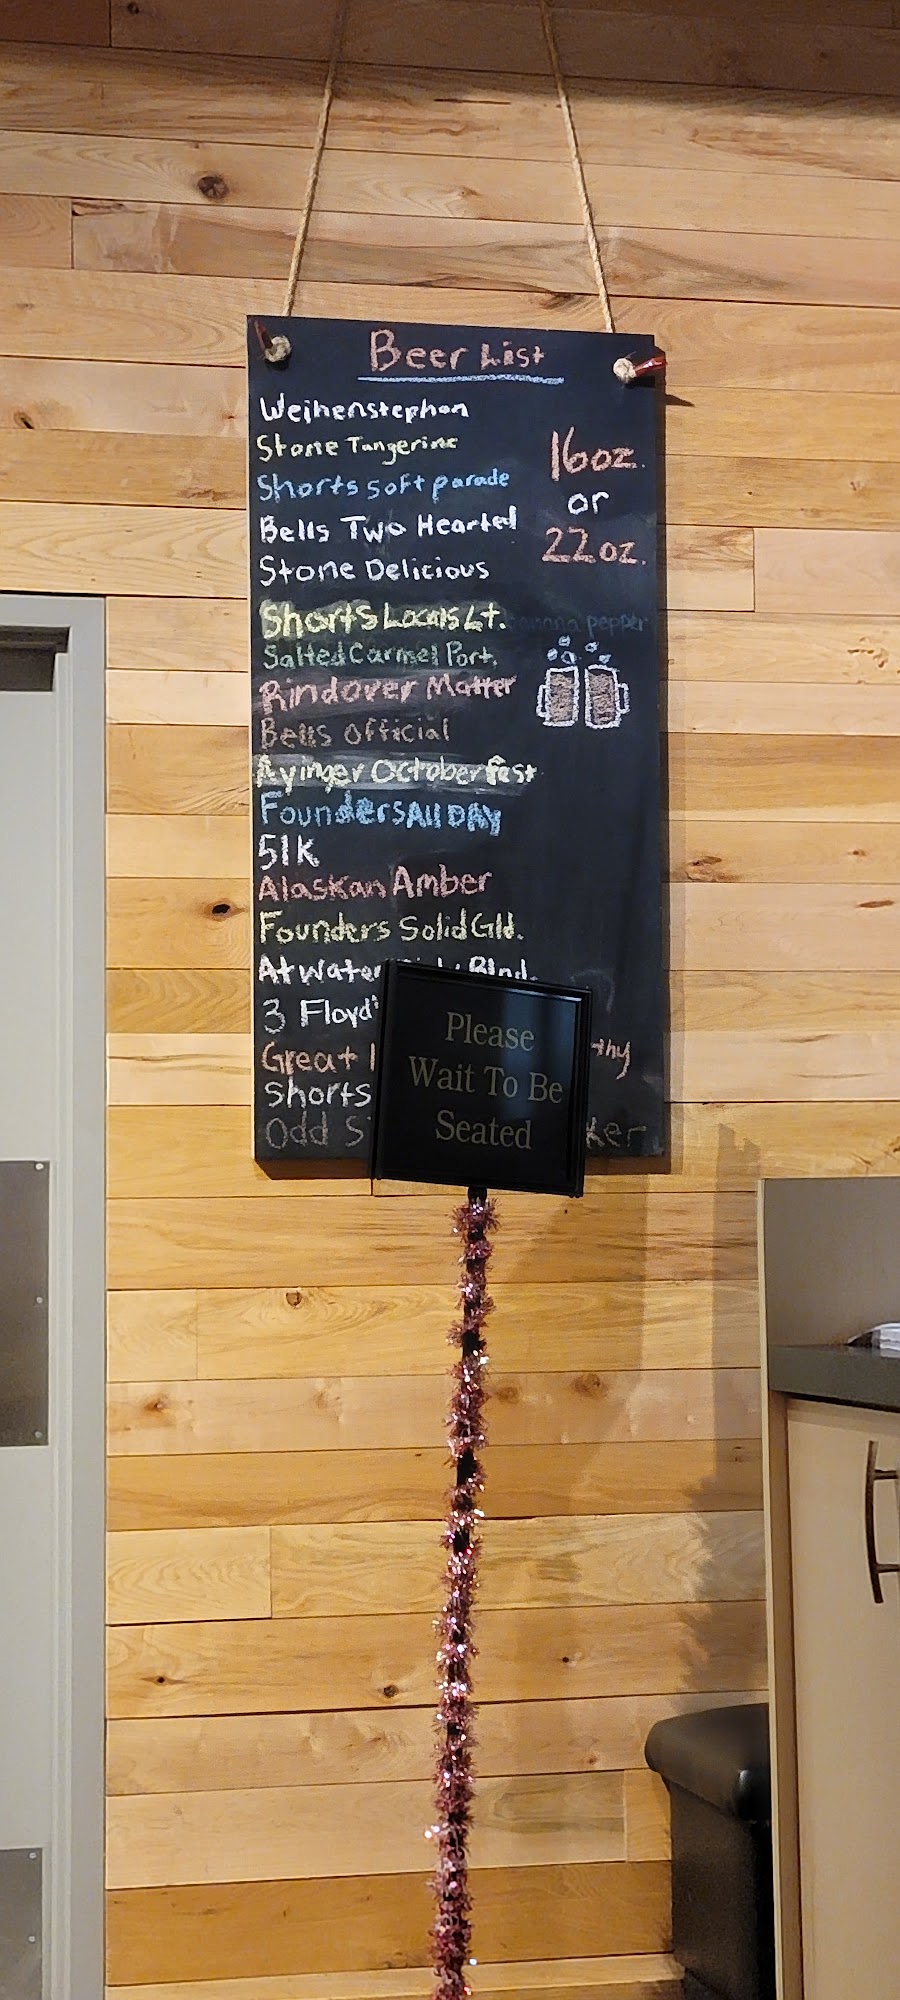 Beer List
Weihenstephan
Stone Tangerine
Shorts soft parade
Bells Two Hearted
Stone Delicious
16oz.
or
22oz.
Shorts Locals Lt.
banana pepper
Salted Carmel Port.
Rindover Matter
Bells Official
Ayinger Octoberfest
Founders All DAY
51K
Alaskan Amber
Founders Solid Gld.
Atwater Blnd.
3 Floyd's
Great
Shorts
Odd
Please
Wait To Be
Seated